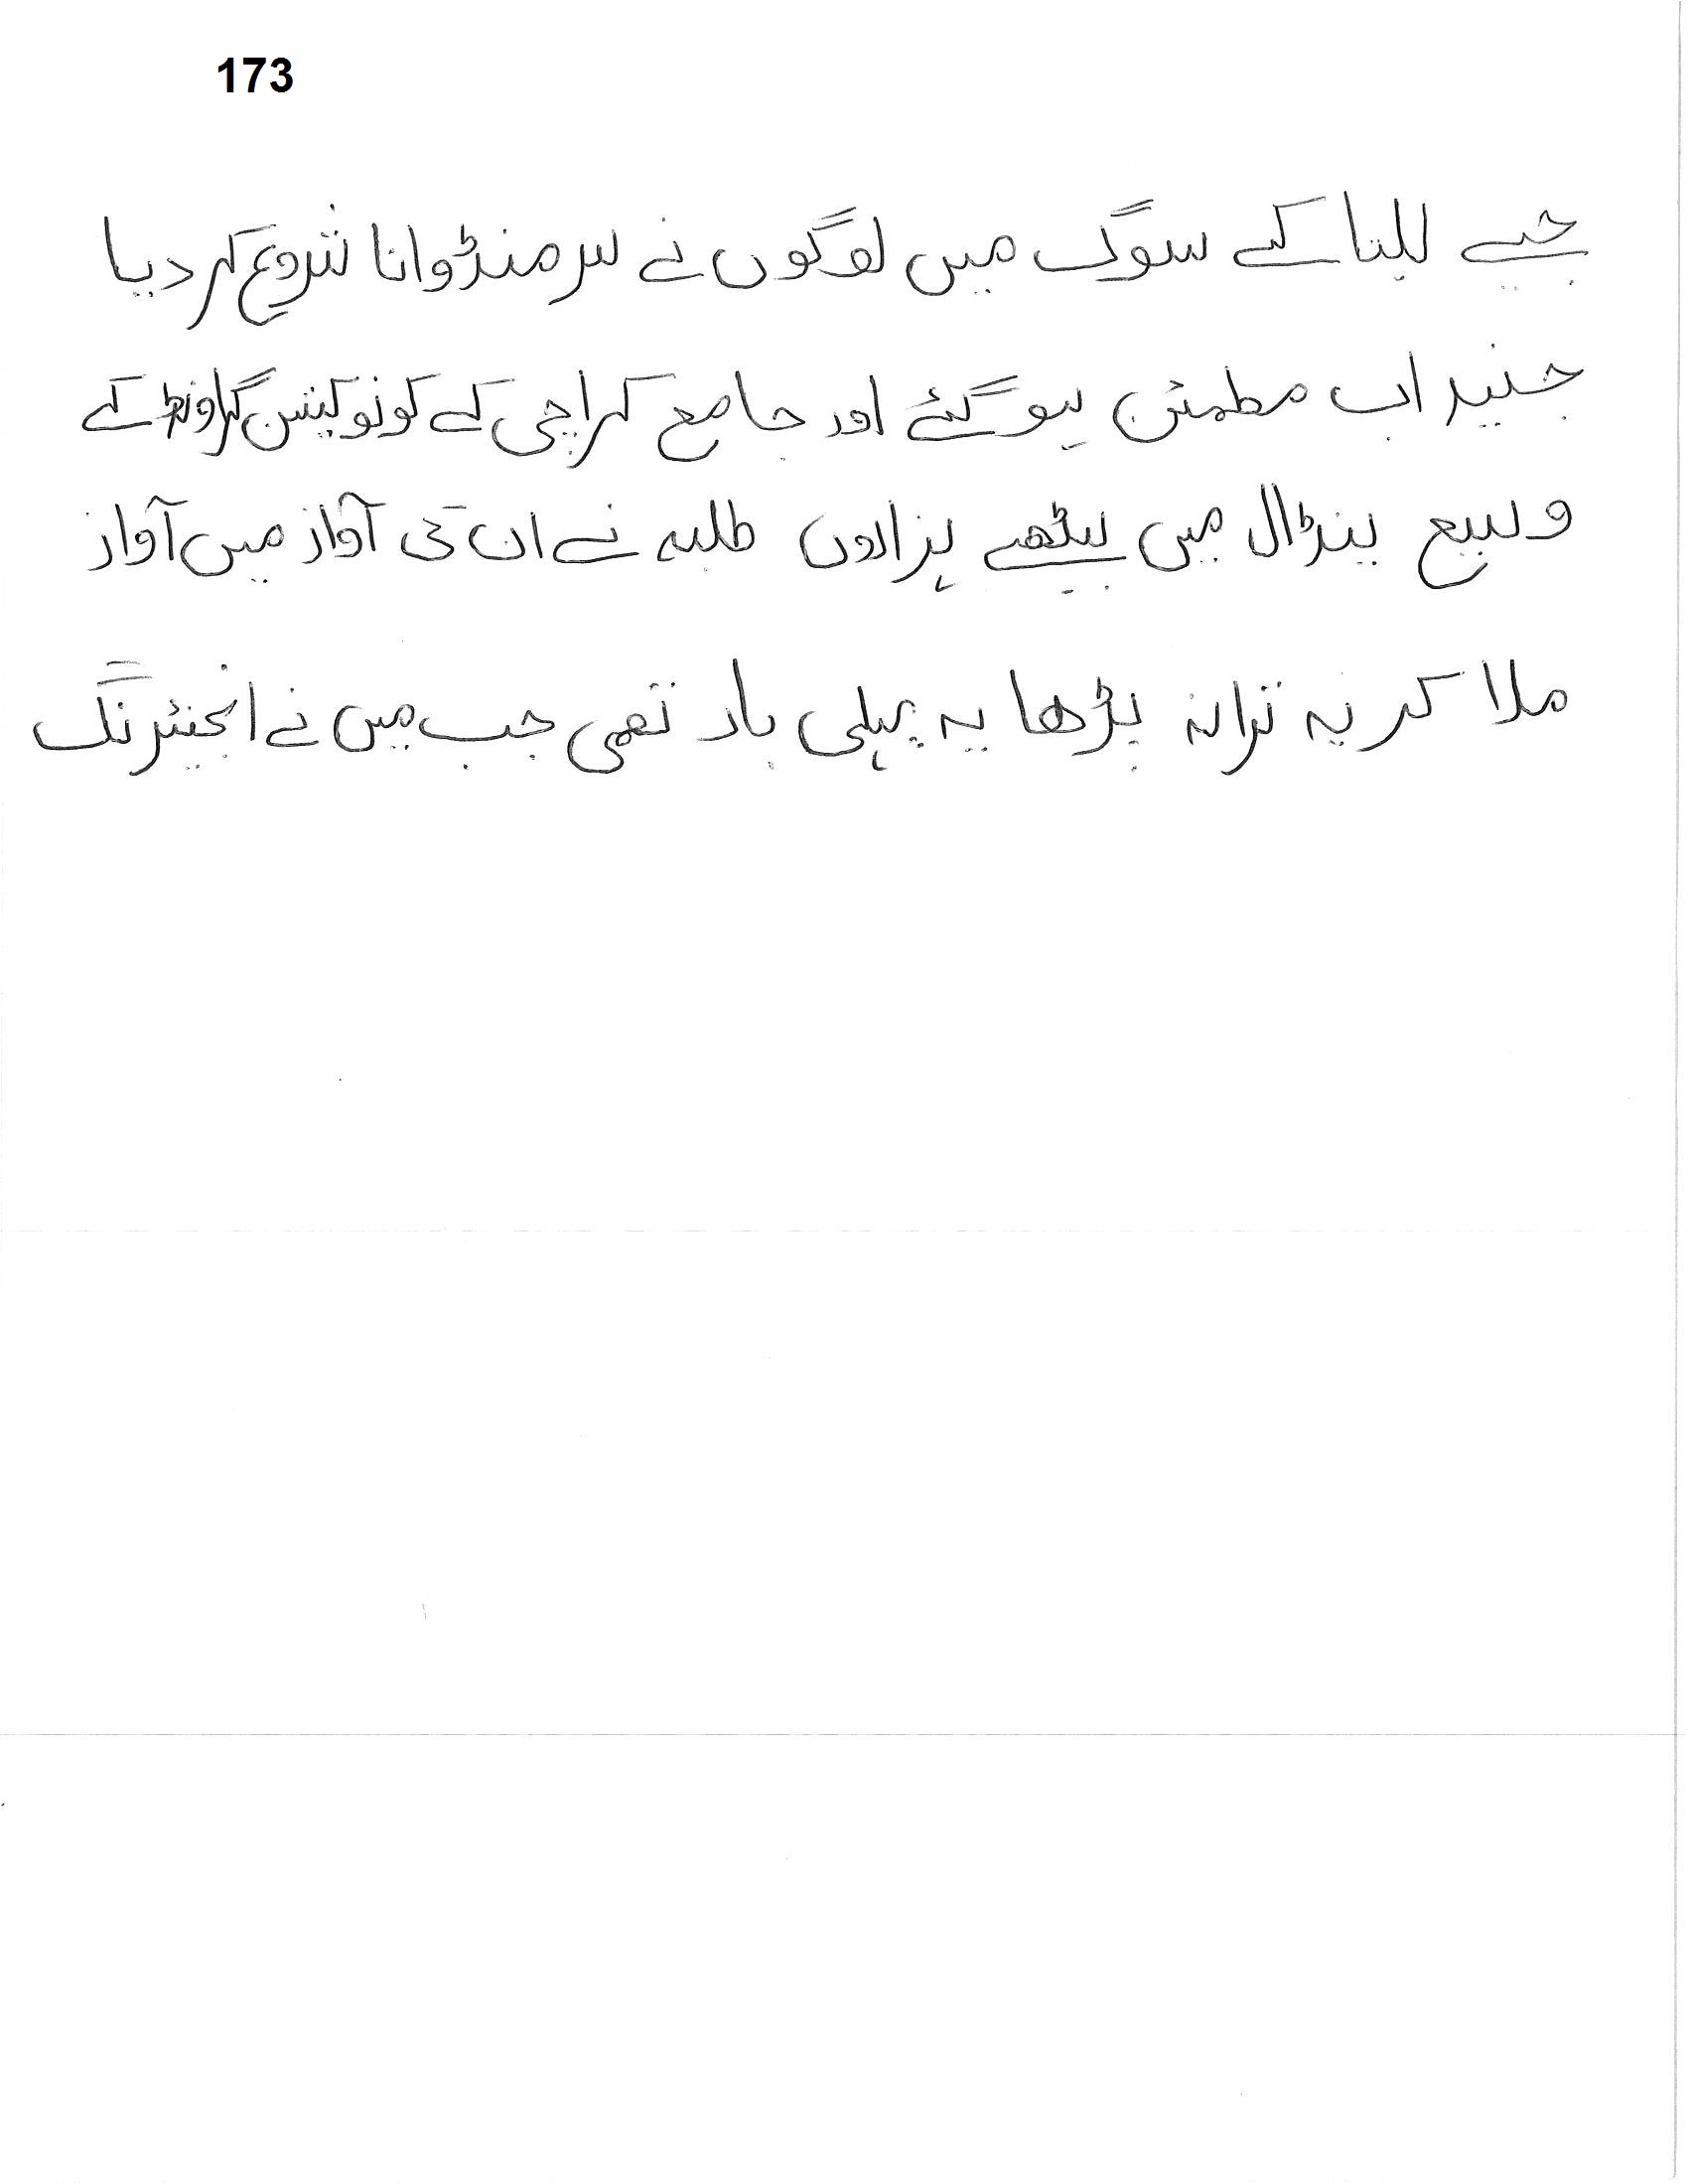 173
جیے للیتا کے سوگ میں لوگوں نے سر منڈوانا شروع کر دیا
جنید اب مطمئن ہو گئے اور جامع کراچی کے کونوکیشن گراونڈ کے
وسیع پنڈال میں بیٹھے ہزاروں طلبہ نے ان کی آواز میں آواز
ملا کر یہ ترانہ پڑھا یہ پہلی بار تھی جب میں نے انجنیئرنگ